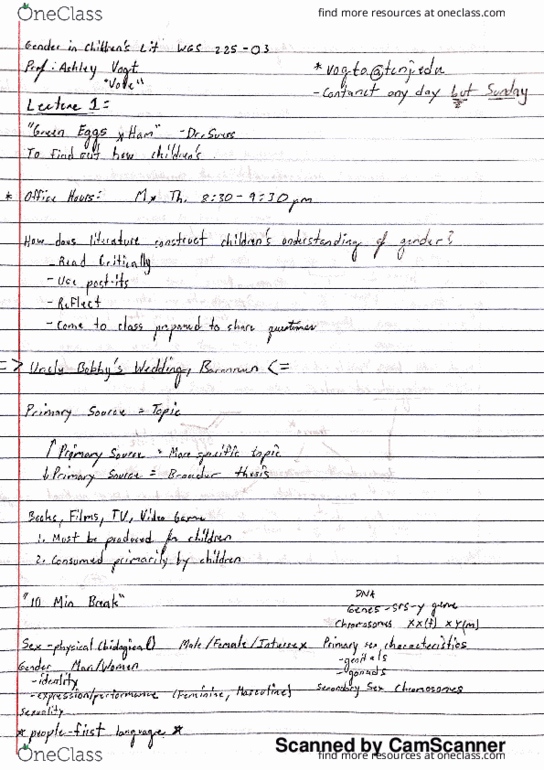 OneClass find more resources at oneclass.com
Gender in children's Lit WGS 225-03
Prof: Ashley Vogt *vogta@tcnj.edu
"Vote" -Contanct any day but Sunday
Lecture 1:
"Green Eggs & Ham" -Dr. Suess
To find out how children's
* Office Hours: M & Th. 8:30-9:30pm
How does literature construct children's understanding of gender?
-Read Critically
-Use post-its
-Reflect
-Come to class prepared to share questions
=> Uncle Bobby's Wedding, Brannen <=
Primary Source = Topic
↑ Primary Source = More specific topic
↓ Primary Source = Broader thesis
Books, Films, TV, Video Game
1. Must be produced for children
2. Consumed primarily by children
"10 Min Break"
DNA
Genes -SRS-y gene
Chromosomes XX(f) XY(m)
Sex -physical (biological) Male/Female/Intersex Primary sex characteristics
-genitals
-gonads
Gender Man/Women
-identity
-expression/performance (Feminine, Masculine) Secondary Sex Chromosomes
Sexuality
* people-first language *
OneClass find more resources at oneclass.com
Scanned by CamScanner